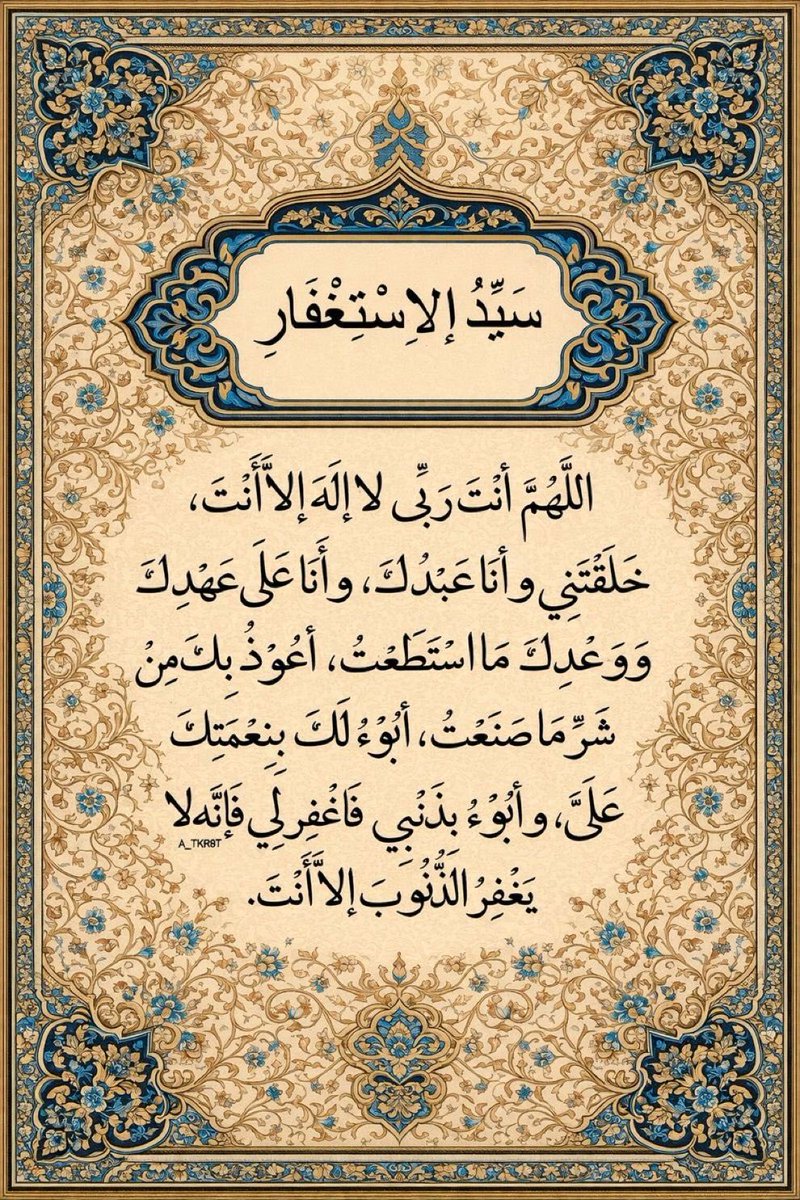 سَيِّدُ إلاِسْتِغْفَارِ
اللَّهُمَّ أنْتَ رَبِّى لا إلَهَ إلاَّ أَنْتَ،
خَلَقْتَنِي وأنَا عَبْدُكَ، وأَنَا عَلَى عَهْدِكَ
وَوَعْدِكَ مَا اسْتَطَعْتُ، أعُوْذُ بِكَ مِنْ
شَرِّ مَا صَنَعْتُ، أبُوْءُ لَكَ بِنِعْمَتِكَ
عَلَىَّ، وأبُوْءُ بِذَنْبِي فَاغْفِر لِي فَإنَّه لا
A_TKR8T
يَغْفِرُ الذُّنُوبَ إلاَّ أَنْتَ.